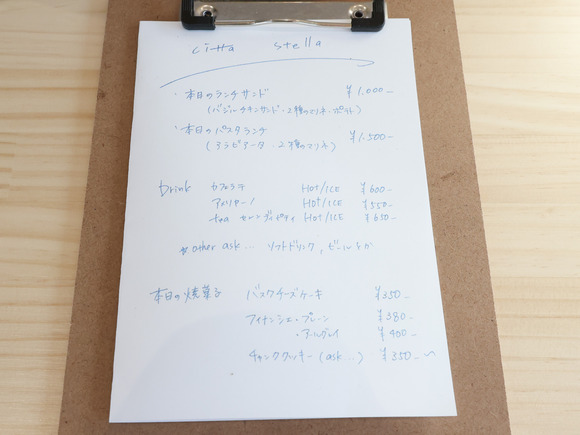 citta stella
・本日のランチサンド ¥1.000-
(バジルチキンサンド・2種のマリネ・ポテト)
・本日のパスタランチ ¥1.500-
(アラビアータ・2種のマリネ)
Drink カフェラテ Hot/ICE ¥600-
アメリカーノ Hot/ICE ¥550-
tea セレンディピティ Hot/ICE ¥650-
* other ask... ソフトドリンク, ビールとか
本日の焼菓子 バスクチーズケーキ ¥350-
フィナンシェ・プレーン ¥380-
・アールグレイ ¥400-
チャンククッキー (ask...) ¥350-~